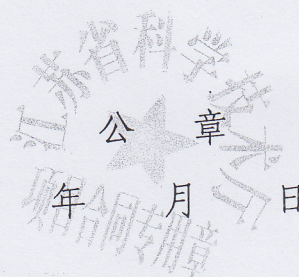 江苏省科学技术厅
公 章
项目合同专用章
年 月 日